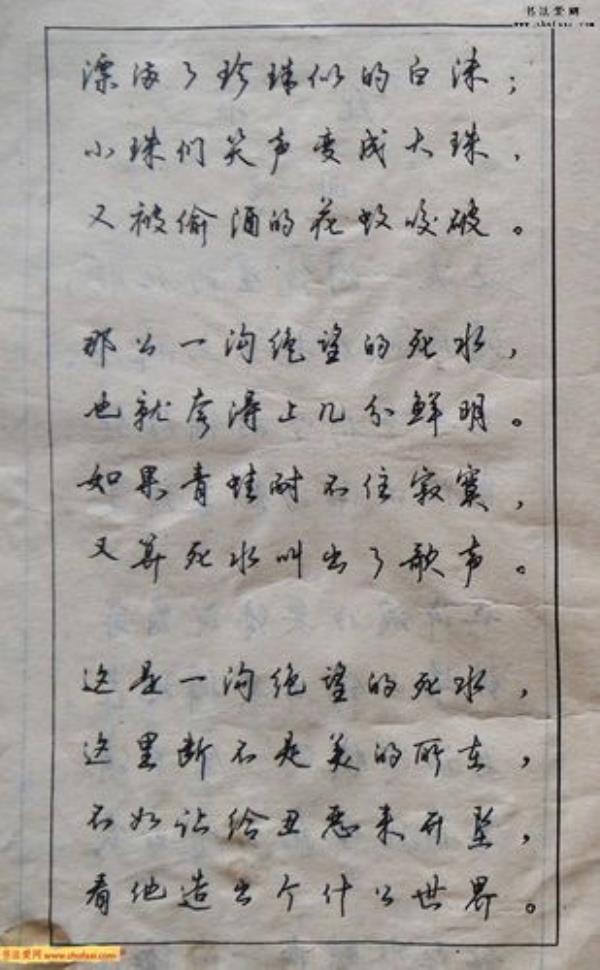 书法爱网
漂满了珍珠似的白沫；
小珠们笑声变成大珠，
又被偷酒的花蚊咬破。
那么一沟绝望的死水，
也就夸得上几分鲜明。
如果青蛙耐不住寂寞，
又算死水叫出了歌声。
这是一沟绝望的死水，
这里断不是美的所在，
不如让给丑恶来开垦，
看他造出个什么世界。
书法爱网